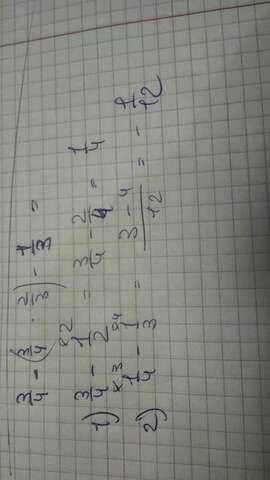 3/4 - (3/4 · 2/3) - 1/3 =
1) 3/4 - 1/2 = 3/4 - 2/4 = 1/4
2) 1/4 - 1/3 = 3 - 4/12 = - 1/12